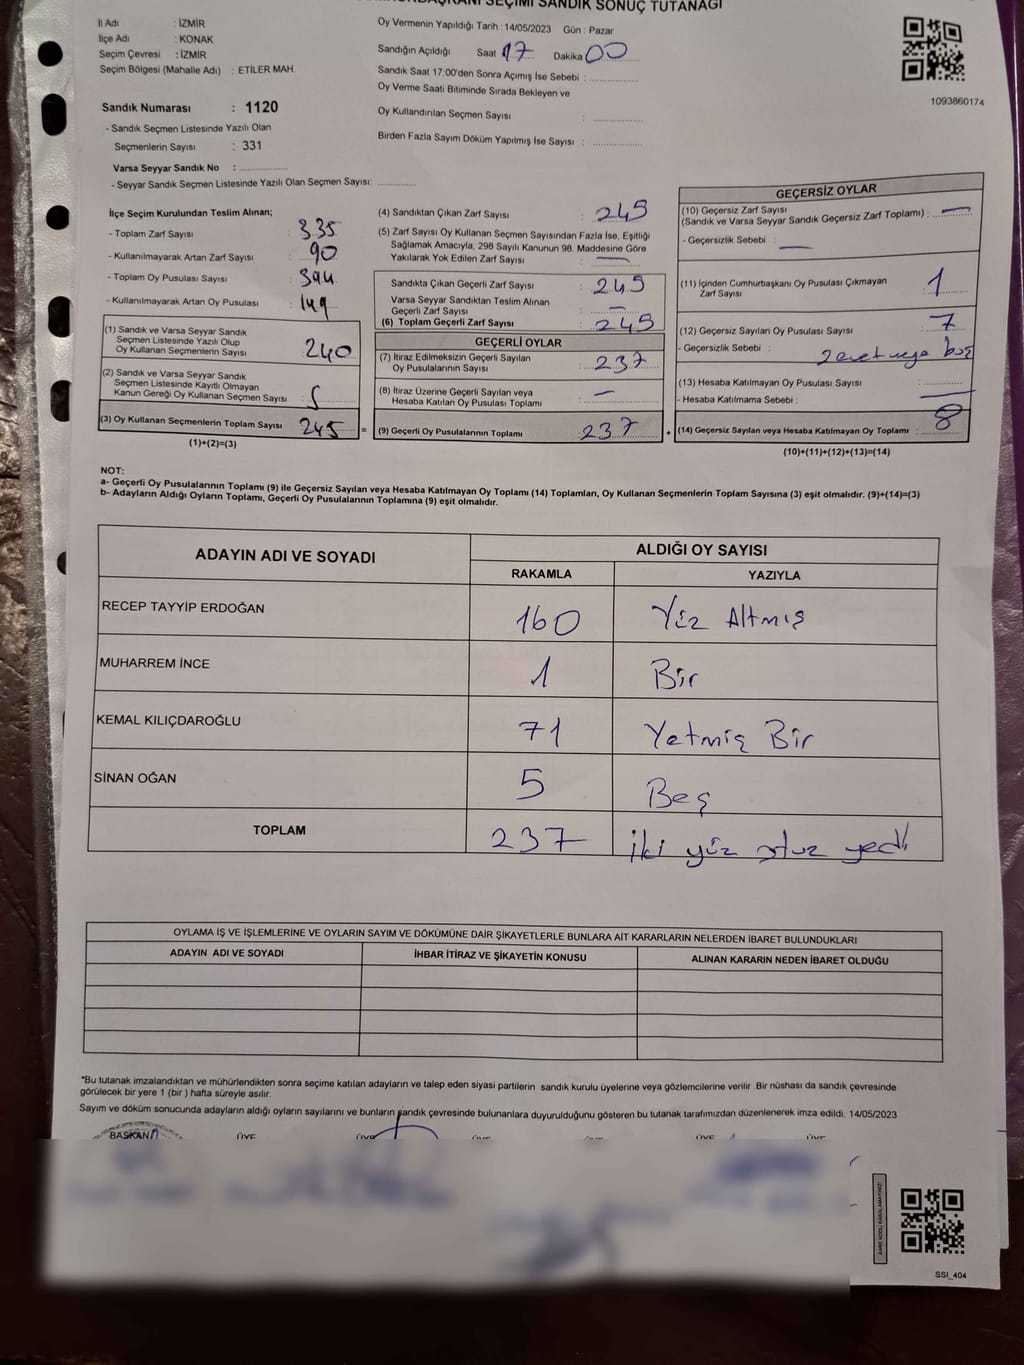 SEÇİMİ SANDIK SONUÇ TUTANAĞI
İl Adı : İZMİR
İlçe Adı : KONAK
Seçim Çevresi : İZMİR
Seçim Bölgesi (Mahalle Adı) : ETİLER MAH.
Oy Vermenin Yapıldığı Tarih : 14/05/2023 Gün : Pazar
Sandığın Açıldığı Saat 17 Dakika 00
Sandık Saat 17:00'den Sonra Açımış İse Sebebi :
Oy Verme Saati Bitiminde Sırada Bekleyen ve
Oy Kullandırılan Seçmen Sayısı :
Birden Fazla Sayım Döküm Yapılmış İse Sayısı :
1093860174
Sandık Numarası : 1120
- Sandık Seçmen Listesinde Yazılı Olan
Seçmenlerin Sayısı : 331
Varsa Seyyar Sandık No :
- Seyyar Sandık Seçmen Listesinde Yazılı Olan Seçmen Sayısı:
İlçe Seçim Kurulundan Teslim Alınan;
- Toplam Zarf Sayısı : 335
- Kullanılmayarak Artan Zarf Sayısı : 90
- Toplam Oy Pusulası Sayısı : 394
- Kullanılmayarak Artan Oy Pusulası : 149
(1) Sandık ve Varsa Seyyar Sandık
Seçmen Listesinde Yazılı Olup
Oy Kullanan Seçmenlerin Sayısı : 240
(2) Sandık ve Varsa Seyyar Sandık
Seçmen Listesinde Kayıtlı Olmayan
Kanun Gereği Oy Kullanan Seçmen Sayısı : 5
(3) Oy Kullanan Seçmenlerin Toplam Sayısı : 245 =
(1)+(2)=(3)
(4) Sandıktan Çıkan Zarf Sayısı : 245
(5) Zarf Sayısı Oy Kullanan Seçmen Sayısından Fazla İse, Eşitliği
Sağlamak Amacıyla, 298 Sayılı Kanunun 98. Maddesine Göre
Yakılarak Yok Edilen Zarf Sayısı : —
Sandıkta Çıkan Geçerli Zarf Sayısı : 245
Varsa Seyyar Sandıktan Teslim Alınan
Geçerli Zarf Sayısı : —
(6) Toplam Geçerli Zarf Sayısı : 245
GEÇERLİ OYLAR
(7) İtiraz Edilmeksizin Geçerli Sayılan
Oy Pusulalarının Sayısı : 237
(8) İtiraz Üzerine Geçerli Sayılan veya
Hesaba Katılan Oy Pusulaları Toplamı : —
(9) Geçerli Oy Pusulalarının Toplamı : 237 +
GEÇERSİZ OYLAR
(10) Geçersiz Zarf Sayısı
(Sandık ve Varsa Seyyar Sandık Geçersiz Zarf Toplamı) : —
- Geçersizlik Sebebi : —
(11) İçinden Cumhurbaşkanı Oy Pusulası Çıkmayan
Zarf Sayısı : 1
(12) Geçersiz Sayılan Oy Pusulası Sayısı : 7
- Geçersizlik Sebebi : 2 evet veya boş
(13) Hesaba Katılmayan Oy Pusulası Sayısı :
- Hesaba Katılmama Sebebi : —
(14) Geçersiz Sayılan veya Hesaba Katılmayan Oy Toplamı : 8
(10)+(11)+(12)+(13)=(14)
NOT:
a- Geçerli Oy Pusulalarının Toplamı (9) ile Geçersiz Sayılan veya Hesaba Katılmayan Oy Toplamı (14) Toplamları, Oy Kullanan Seçmenlerin Toplam Sayısına (3) eşit olmalıdır. (9)+(14)=(3)
b- Adayların Aldığı Oyların Toplamı, Geçerli Oy Pusulalarının Toplamına (9) eşit olmalıdır.
ADAYIN ADI VE SOYADI ALDIĞI OY SAYISI
RAKAMLA YAZIYLA
RECEP TAYYİP ERDOĞAN 160 Yüz Altmış
MUHARREM İNCE 1 Bir
KEMAL KILIÇDAROĞLU 71 Yetmiş Bir
SİNAN OĞAN 5 Beş
TOPLAM 237 iki yüz otuz yedi
OYLAMA İŞ VE İŞLEMLERİNE VE OYLARIN SAYIM VE DÖKÜMÜNE DAİR ŞİKAYETLERLE BUNLARA AİT KARARLARIN NELERDEN İBARET BULUNDUKLARI
ADAYIN ADI VE SOYADI İHBAR İTİRAZ VE ŞİKAYETİN KONUSU ALINAN KARARIN NEDEN İBARET OLDUĞU
*Bu tutanak imzalandıktan ve mühürlendikten sonra seçime katılan adayların ve talep eden siyasi partilerin sandık kurulu üyelerine veya gözlemcilerine verilir .Bir nüshası da sandık çevresinde
görülecek bir yere 1 (bir ) hafta süreyle asılır.
Sayım ve döküm sonucunda adayların aldığı oyların sayılarını ve bunların sandık çevresinde bulunanlara duyurulduğunu gösteren bu tutanak tarafımızdan düzenlenerek imza edildi. 14/05/2023
BAŞKAN ÜYE ÜYE ÜYE ÜYE ÜYE ÜYE
KARE KODU KARALAMAYINIZ!
SSI_404